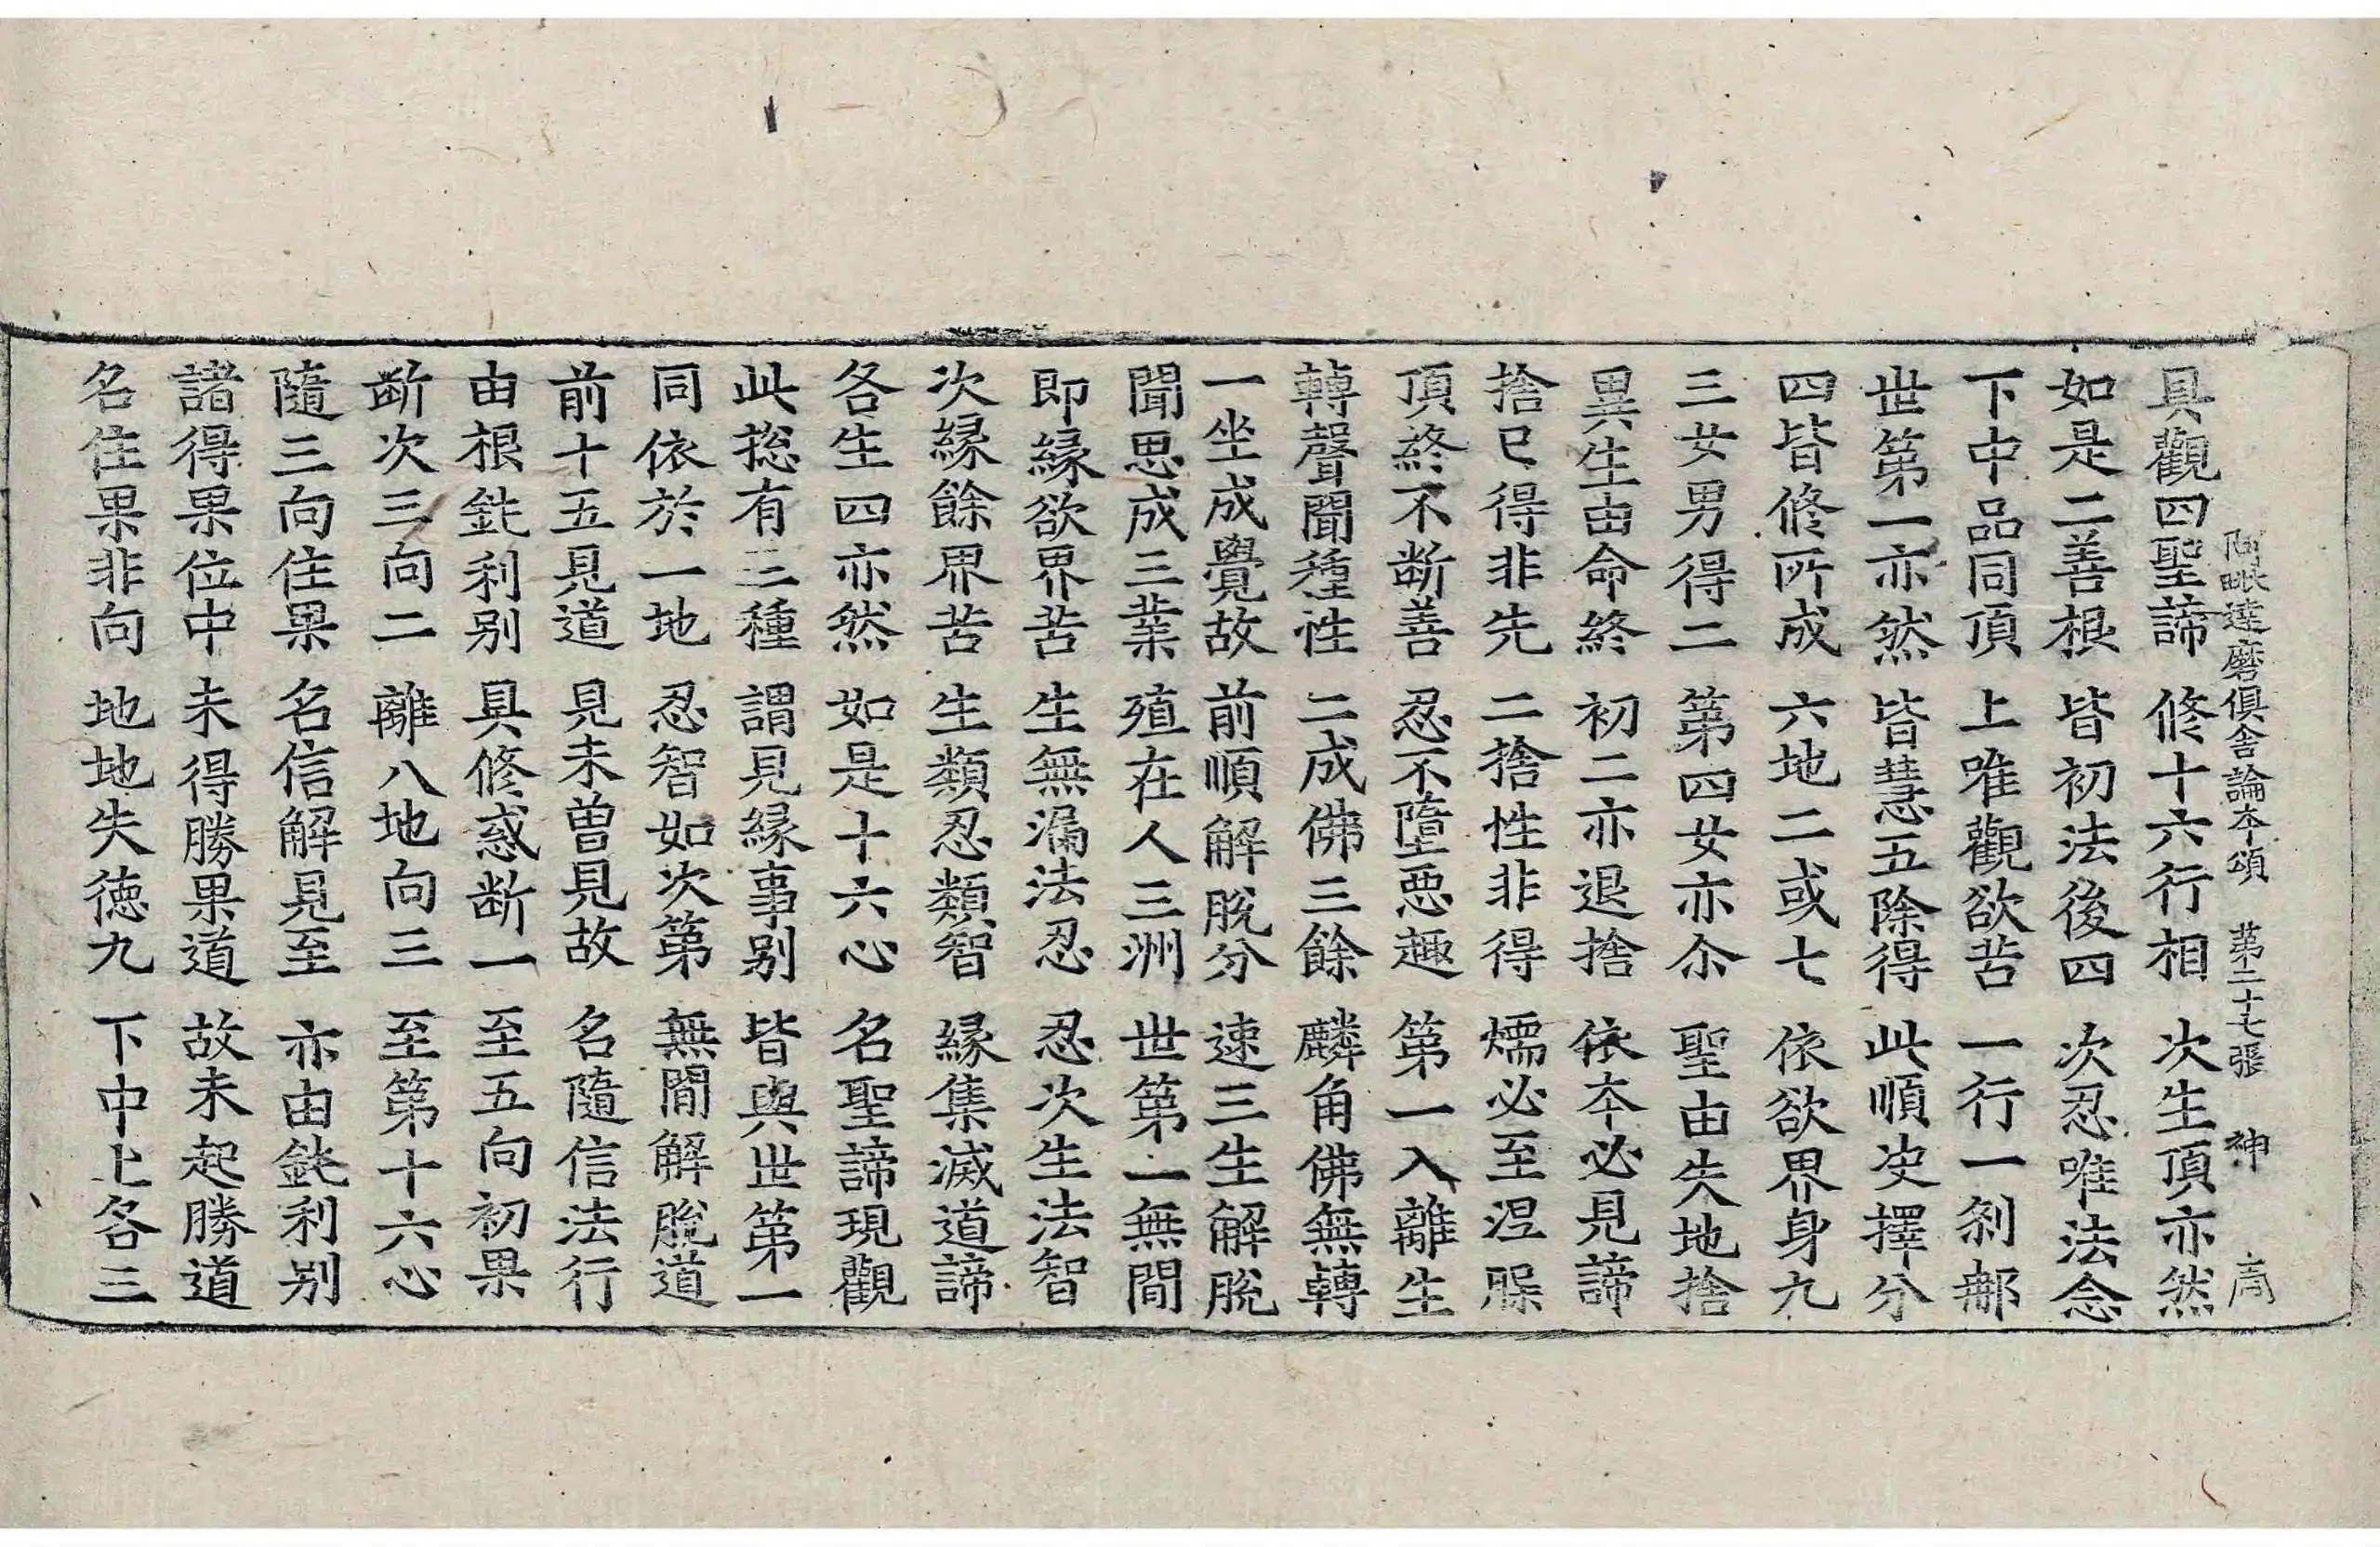 阿毗達磨俱舍論本頌　第二十七張　神
具觀四聖諦　修十六行相　次生頂亦然
如是二善根　皆初法後四　次忍唯法念
下中品同頂　上唯觀欲苦　一行一刹那
世第一亦然　皆慧五除得　此順决擇分
四皆修所成　六地二或七　依欲界身九
三女男得二　第四女亦尒　聖由失地捨
異生由命終　初二亦退捨　依本必見諦
捨已得非先　二捨性非得　煗必至涅槃
頂終不断善　忍不墮惡趣　第一入離生
轉聲聞種性　二成佛三餘　麟角佛無轉
一坐成覺故　前順解脫分　速三生解脫
聞思成三業　殖在人三洲　世第一無間
即緣欲界苦　生無漏法忍　忍次生法智
次緣餘界苦　生類忍類智　緣集滅道諦
各生四亦然　如是十六心　名聖諦現觀
此捴有三種　謂見緣事別　皆與世第一
同依於一地　忍智如次第　無間解脫道
前十五見道　見未曾見故　名隨信法行
由根鈍利別　具修惑断一　至五向初果
断次三向二　離八地向三　至第十六心
隨三向住果　名信解見至　亦由鈍利別
諸得果位中　未得勝果道　故未起勝道
名住果非向　地地失德九　下中上各三